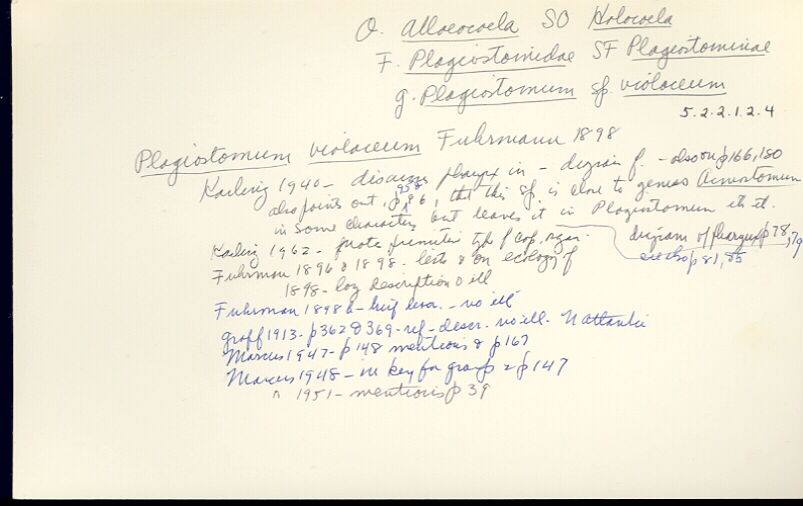 O. Alloeocoela SO Holocoela
F. Plagiostomidae SF Plagiostominae
g. Plagiostomum sp. violaceum
5.2.2.1.2.4
Plagiostomum violaceum Fuhrmann 1898
Karling 1940 - discusses pharynx in - diagram p. - also on p 166, 180
also points out, p 86, that this sp. is close to genus Acmostomum
in some characters but leaves it in Plagiostomum
Karling 1962 - type of cop. organ -
diagram of pharynx p 78, 79
p 81, 85
Fuhrman 1896 & 1898 - lists & on ecology of
1898 - long description & ill
Fuhrman 1898 - brief descr. - no ill
Graff 1913 - p 362 & 369 - ref - descr. no ill. N Atlantic
Marcus 1947 - p 148 mentions & p 167
Marcus 1948 - in key for group 2 p 147
" 1951 - mentions p 39